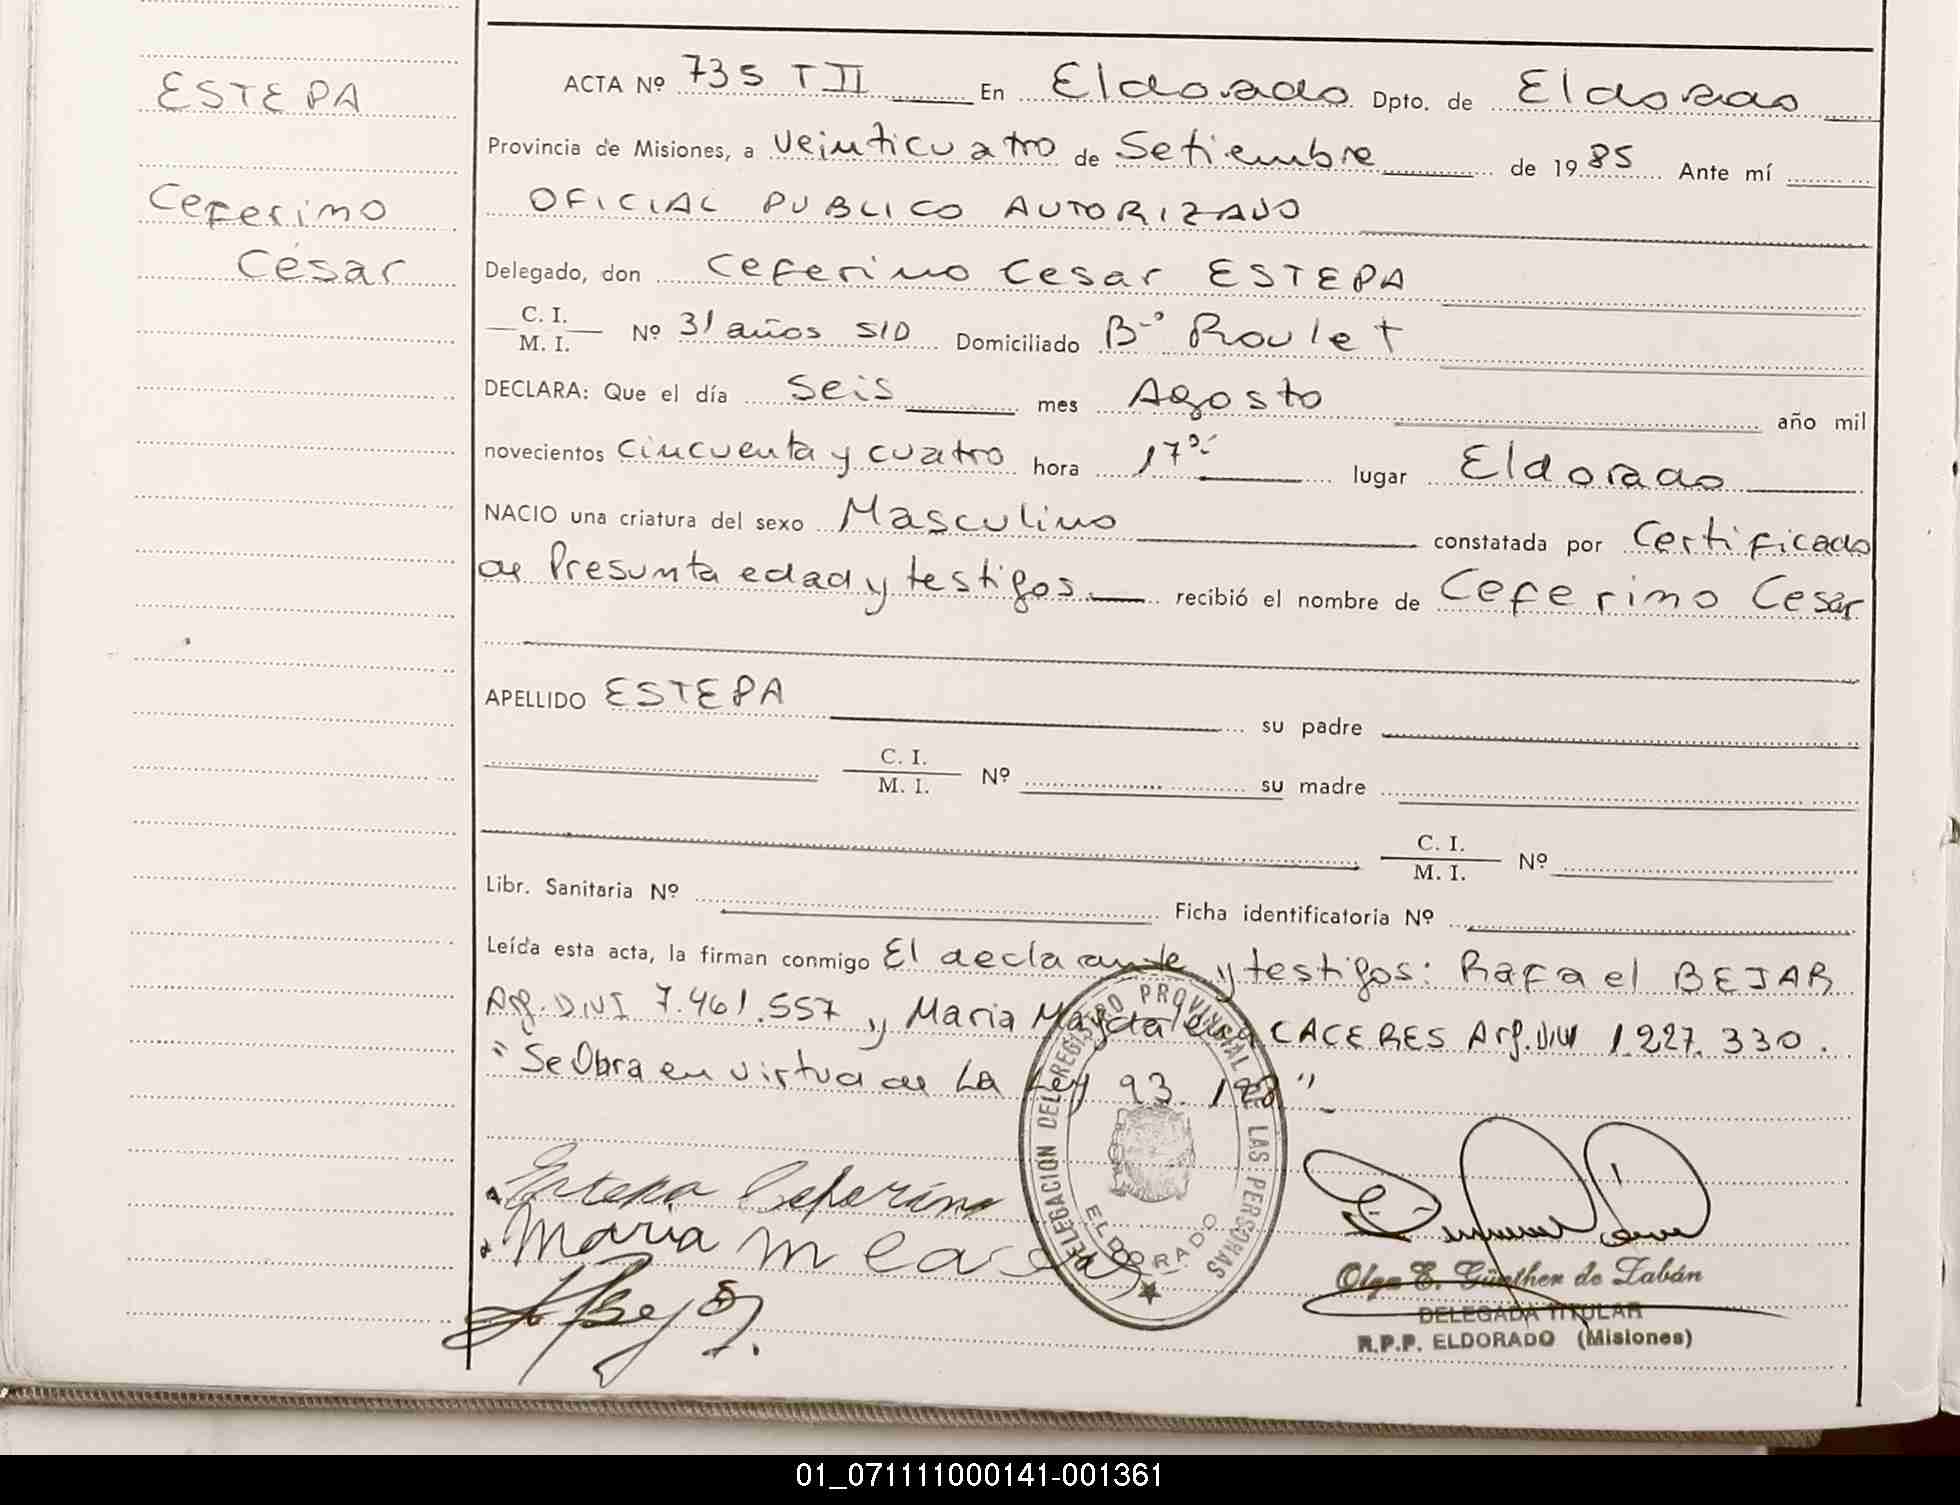 ESTEPA
Ceferino
César
ACTA Nº 735 T II En Eldorado Dpto. de Eldorado
Provincia de Misiones, a veinticuatro de Setiembre de 1985 Ante mí
OFICIAL PUBLICO AUTORIZADO
Delegado, don Ceferino Cesar ESTEPA
C. I.
M. I. Nº 31 años S/D Domiciliado Bº Roulet
DECLARA: Que el día Seis mes Agosto año mil
novecientos cincuenta y cuatro hora 17 lugar Eldorado
NACIO una criatura del sexo Masculino constatada por Certificado
de Presunta edad y testigos recibió el nombre de Ceferino Cesar
APELLIDO ESTEPA su padre
C. I.
M. I. Nº su madre
C. I.
M. I. Nº
Libr. Sanitaria Nº Ficha identificatoria Nº
Leída esta acta, la firman conmigo El declarante y testigos: Rafael BEJAR
Arg. DNI 7.461.557 y Maria Magdalena CACERES Arg. DNI 1.227.330.
"Se Obra en virtud de La Ley 23.128"
DELEGACION DEL REGISTRO PROVINCIAL DE LAS PERSONAS
ELDORADO
Estepa Ceferino
Maria M Caceres
Olga E. Günther de Zabán
DELEGADA TITULAR
R.P.P. ELDORADO (Misiones)
01_071111000141-001361